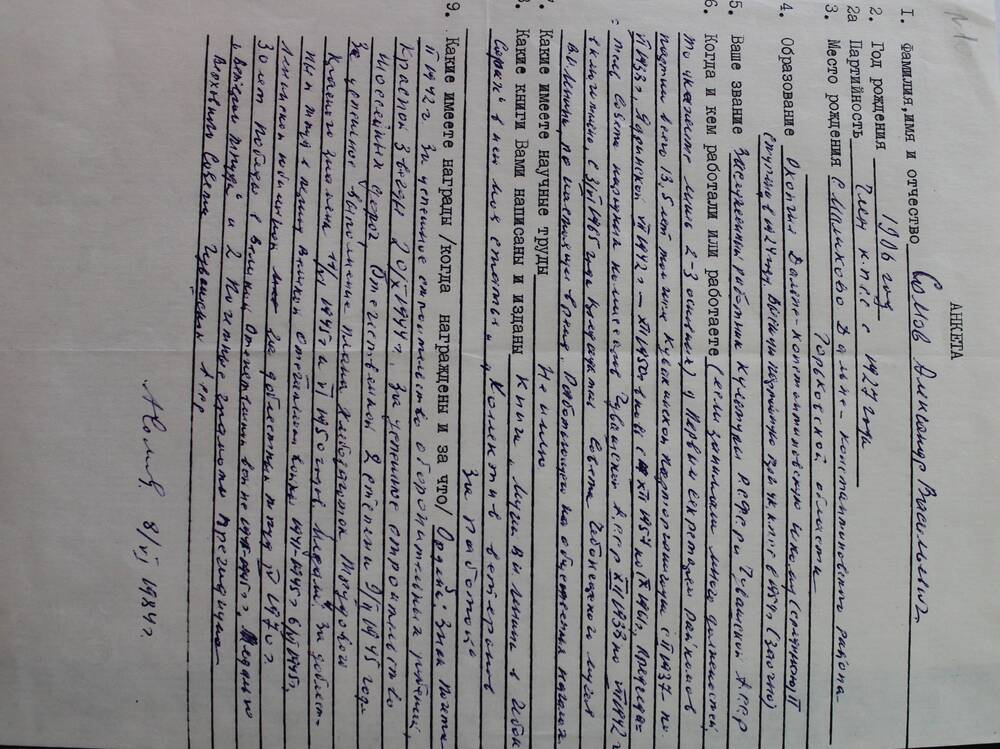 №1
АНКЕТА
1. Фамилия,имя и отчество Сомов Александр Васильевич
2. Год рождения 1906 год
2а Партийность Член кпсс с 1927 года
3. Место рождения с Маликово Дальне-Константиновского района
Горьковской области
4. Образование Окончил Дальне-Константиновскую школу (среднюю) II
ступени в 1924 году. Высшую партийную при цк. кпсс в 1954 г (заочно)
5. Ваше звание Заслуженный работник Культуры РСФСР и Чувашской АССР
6. Когда и кем работали или работаете (если занимали много должностей,
то укажите лишь 2-3 основных) Первым секретарем райкомов
партии всего 13,5 лет Кувакинской парторганизации с II 1937- по
VI 1938 г, Ядринской VII 1942 г — XII 1950 г вновь с XII 1957 по IX 1961 г, Председа-
тель Совета народных комиссаров Чувашской АССР XII 1938 по VII 1942 г
включительно, с 3/VI 1965 года Председатель Совета Чебоксарского музея
В.И. Ленина, по настоящее время. Работающего на общественных началах.
7. Какие имеете научные труды Не имею
8. Какие книги Вами написаны и изданы Книга „Музей В.И. Ленина в Чебок
сарах" в ней моя статья „Коллектив ветеранов
за работой"
9. Какие имеете награды /когда награждены и за что/ Ордена: Знак Почета
II 1942 г. За успешное строительство оборонительных рубежей,
Красной Звезды 20/X 1944 г. За успешное строительство
шоссейных дорог, Отечественной 2 степени 9/II 1945 года
За успешное выполнение плана хлебозаготок, Трудового
Красного Знамени 11/VI 1945 г и VI 1950 годов. Медали: За доблест-
ный труд в период Великой Отечественной войны 1941-1945 г 6/VI 1945 г,
Ленинской юбилейной за доблестный труд IV 1970 г.
30 лет Победы в Великой Отечественной войне 1941-1945 г, Медалью
„Ветеран труда" и 2 Почетные грамоты Президиума
Верховного Совета Чувашской АССР
АСомов. 8/VI 1984 г.